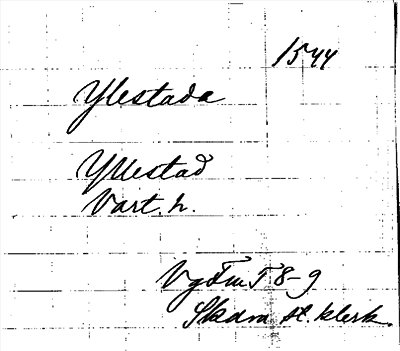 1544
Ylestada
Yllestad
Vart. h.
Vg Fm T 8-9
Skara st. klerk.